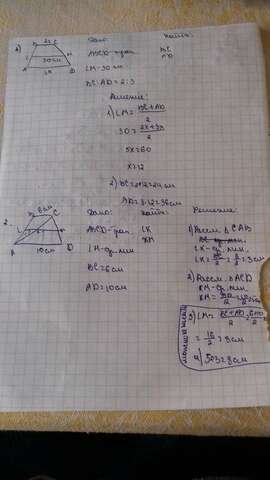 2x
30см
3x
Дано:
ABCD-трап.
LM=30см
BC:AD=2:3
Найти:
BC
AD
Решение:
1) LM = BC+AD / 2
30 = 2x+3x / 2
5x=60
x=12
2) BC=2·12=24 см
AD=3·12=36см
2.
6см
10см
Дано:
ABCD-трап.
LM-ср.лин.
BC=6см
AD=10см
Найти:
LK
KM
Решение
1) Рассм. ΔCAB
LK-ср. лин.
LK= BC/2 = 6/2 = 3см
2) Рассм. ΔACD
KM-ср. лин.
3) LM= BC+AD / 2 = 6+10 / 2
= 16/2 = 8см